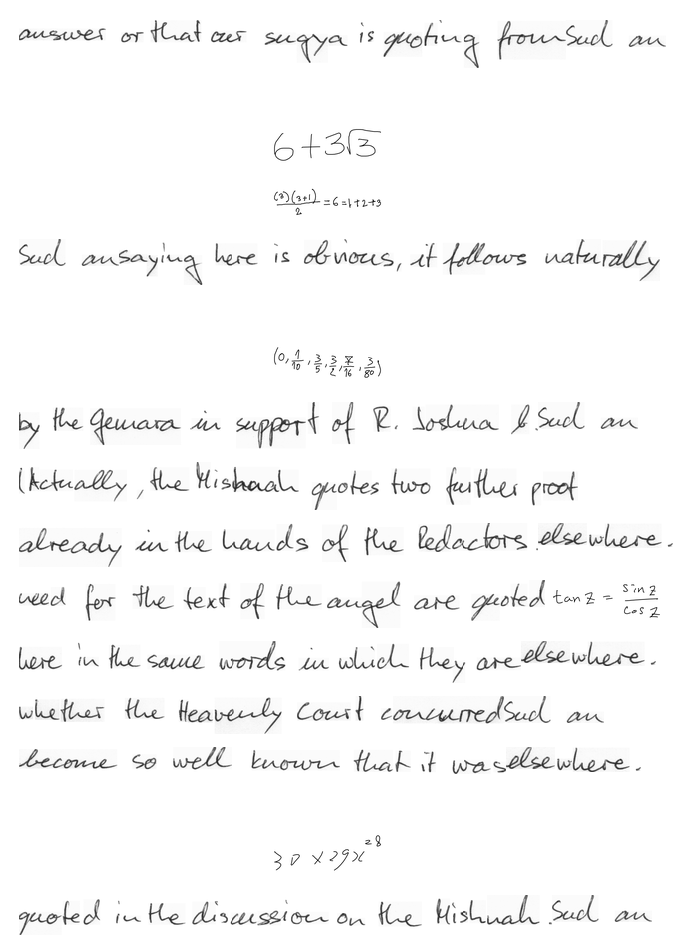 answer or that our sugya is quoting from Sud an
6+3√3
(3)(3+1)/2 = 6 = 1+2+3
Sud an saying here is obvious, it follows naturally
(0, 1/10, 3/5, 3/2, 7/16, 3/80)
by the Gemara in support of R. Joshua b. Sud an
(Actually, the Mishnah quotes two further proof
already in the hands of the Redactors elsewhere.
need for the text of the angel are quoted tan z = sin z / cos z
here in the same words in which they are elsewhere.
whether the Heavenly Court concurred Sud an
become so well known that it was elsewhere.
30 × 29x^28
quoted in the discussion on the Mishnah. Sud an